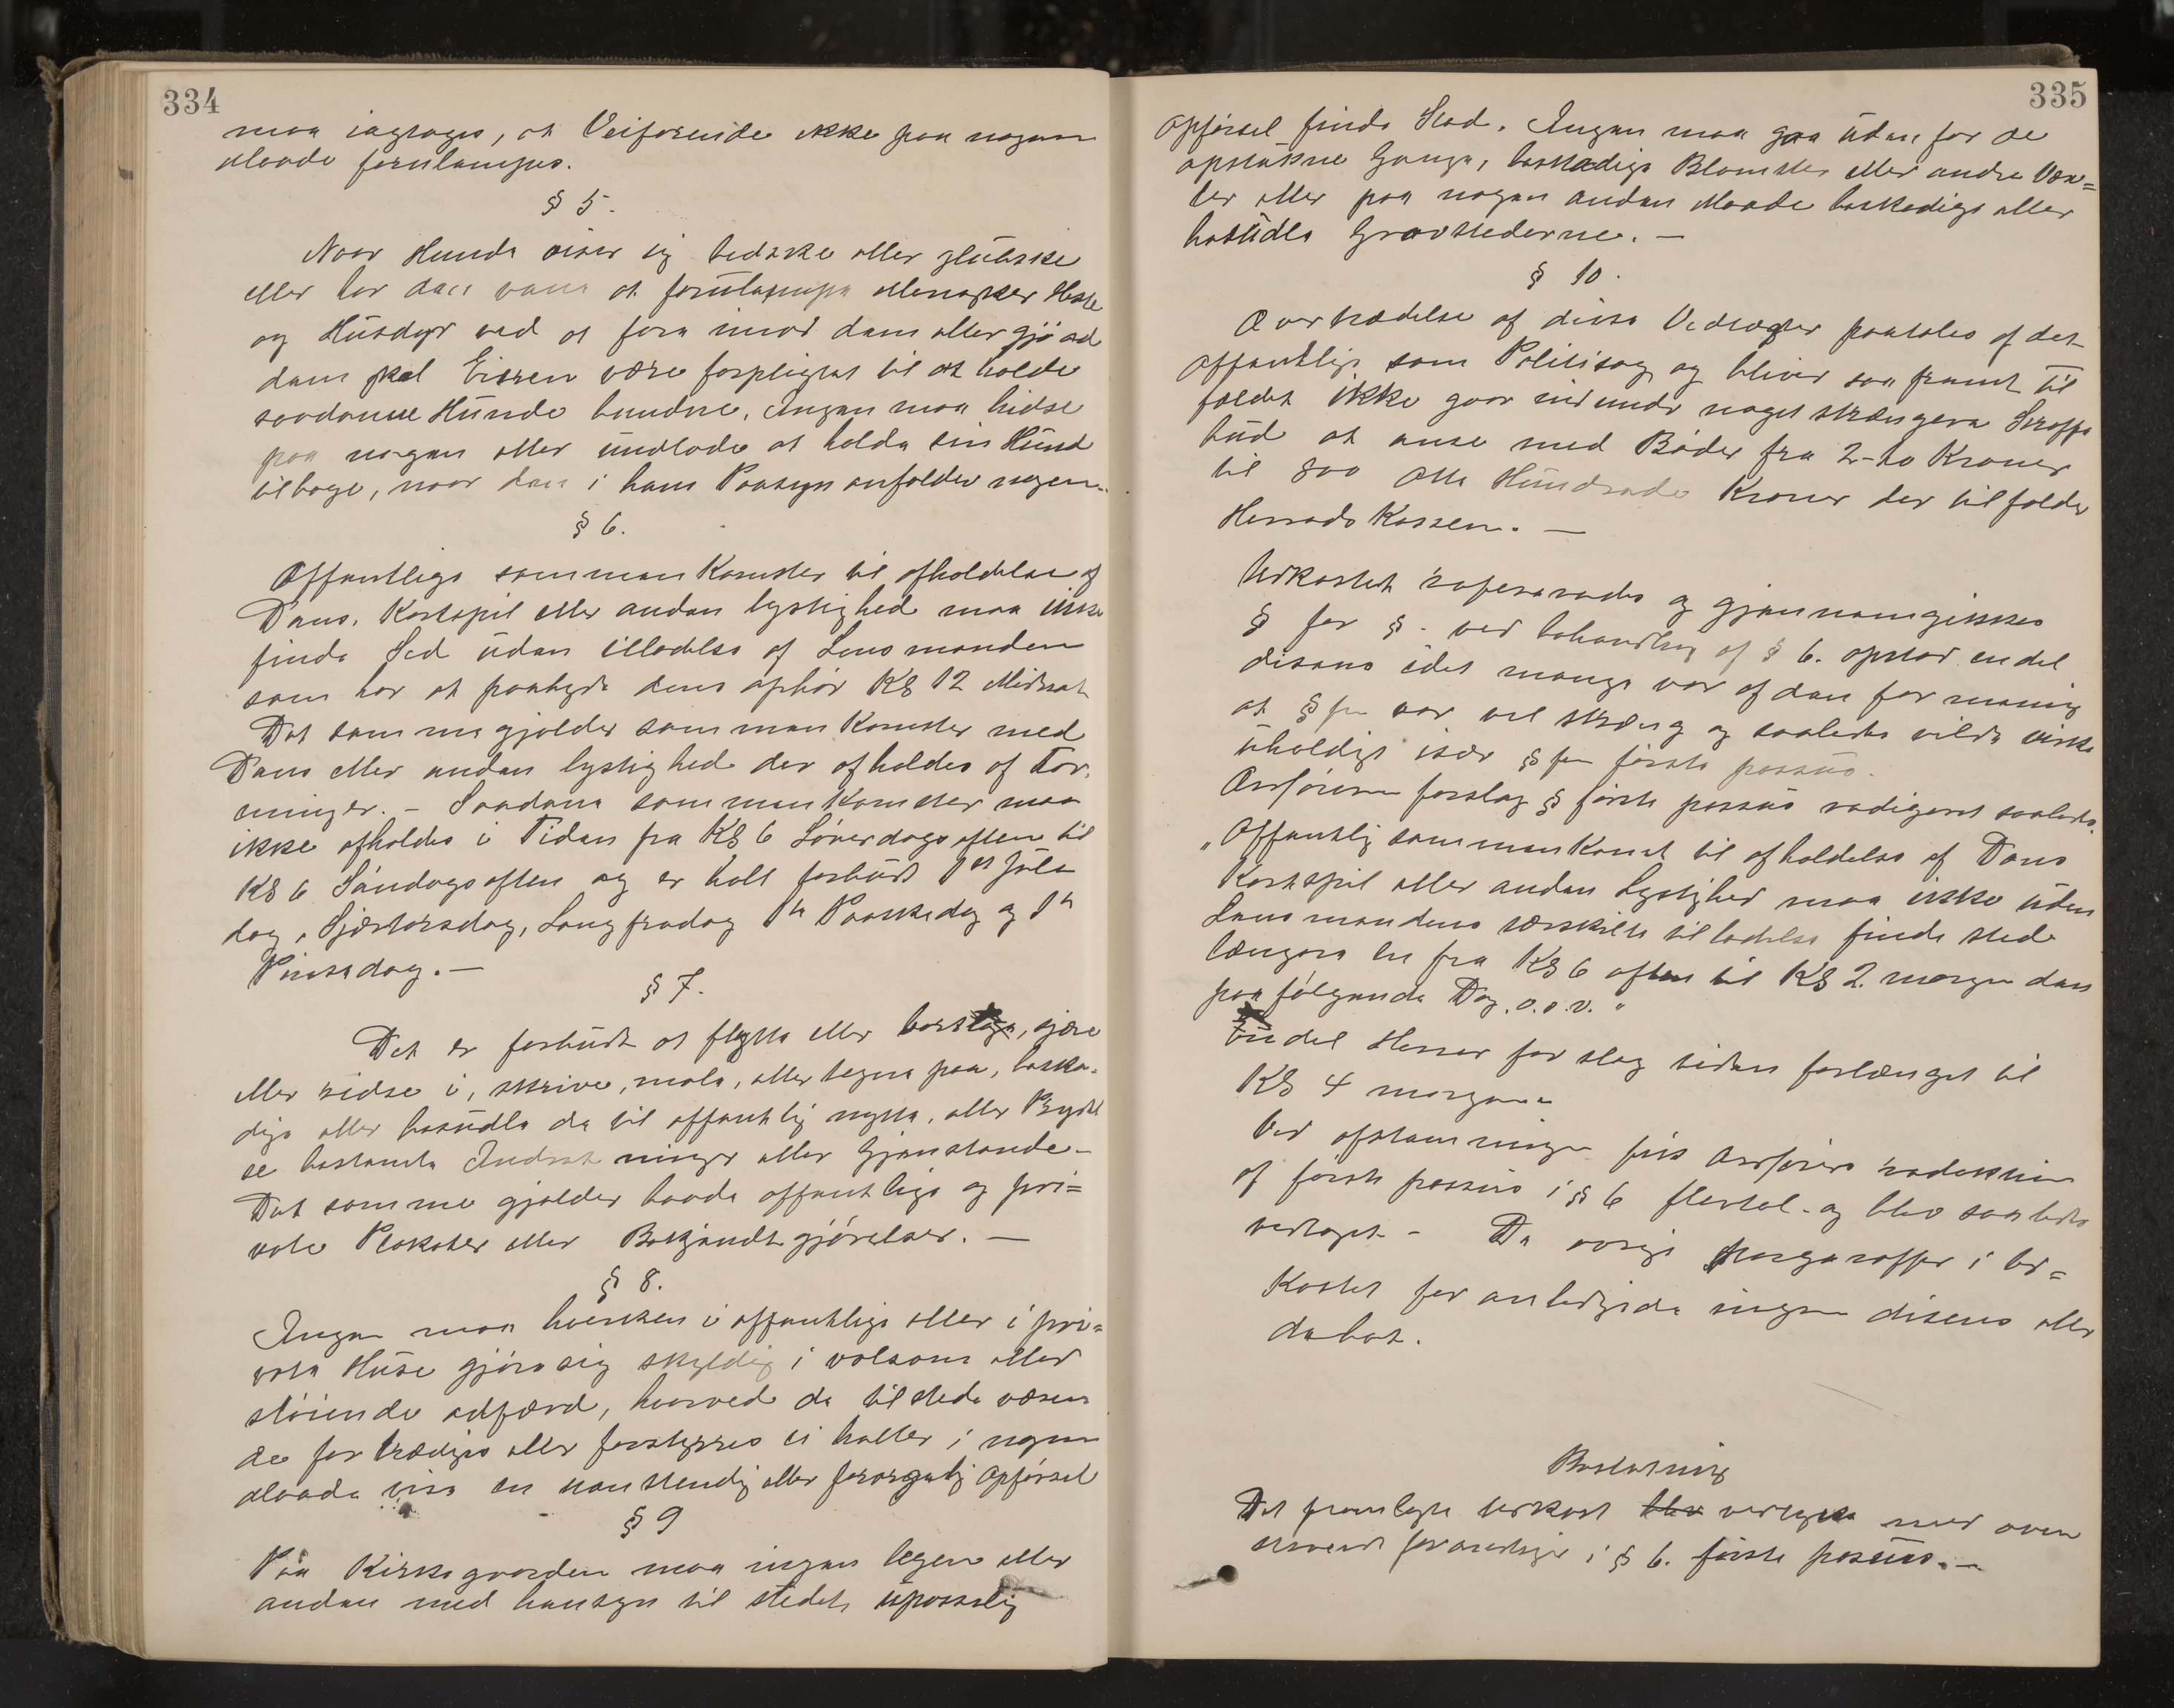 334
maa iagtages, at Veifarende ikke paa nogen
Maade forulempes.
§ 5.
Naar Hunde viser sig bedske eller glubske
eller har den vane at forulempe Mennesker Heste
og Husdyr ved at fare imod dem eller gjø ad
dem skal Eieren være forpligtet til at holde
saadanne Hunde bundne. Ingen maa hidse
paa nogen eller undlade at holde sin Hund
tilbage, naar den i hans Paasyn anfalder nogen.
§ 6.
Offentlige sammenkomster til afholdelse af
Dans, Kortspil eller anden lystighed maa ikke
finde Sted uden tilladelse af Lensmanden
som har at paabyde dens ophør Kl 12 Midnat
Det samme gjælder sammenkomster med
Dans eller anden lystighed der afholdes af For-
eninger. - Saadane sammenkomster maa
ikke afholdes i Tiden fra Kl 6 Løverdagsaften til
Kl 6 Søndagsaften og er helt forbudt 1st Jule
dag, Skjærtorsdag, Langfredag 1te Paaskedag og 1te
Pinsedag. —
§ 7.
Det er forbudt at flytte eller borttage, skjære
eller ridse i, skrive, male, eller tegne paa, beska-
dige eller besudle de til offentlig nytte, eller Prydel
se bestemte Indretninger eller Gjenstande -
Det samme gjælder baade offentlige og pri=
vate Plakater eller Bekjendtgjørelser. —
§ 8.
Ingen maa hverken i offentlige eller i pri=
vate Huse gjøre sig skyldig i volsom eller
støiende adfærd, hvorved de tilstedeværen
de fortrædiges eller forstyrres ei heller i nogen
Maade vise en uanstendig eller forargelig Opførsel
§ 9
Paa Kirkegaarden maa ingen legen eller
anden med hensyn til stedet upasselig
335
Opførsel finde Sted. Ingen maa gaa uden for de
opstukne Gange, beskadige Blomster eller andre Væx=
ter eller paa nogen anden Maade beskadige eller
besudle Gravstederne. —
§ 10.
Overtrædelse af disse Vedtægter paatales af det
Offentlige som Politisag og bliver saafremt Til
fældet ikke gaar ind under noget strængere Straffe
bud at anse med Bøder fra 2-to Kroner
til 800 Otte Hundrede Kroner der tilfalder
Herreds Kassen. —
Udkastet refereredes og gjennemgikkes
§ for §. ved behandling af § 6. opstod en del
disens idet mange var af den formening
at §fen var vel stræng og saaledes vilde virke
uheldigt især §fen første passus.
Ordføreren forslag § første passus redigeret saaledes.
„Offentlig sammenkomst til afholdelse af Dans
Kortspil eller anden Lystighed maa ikke uden
Lensmandens særskilte tilladelse finde sted
længere en fra Kl 6 aften til Kl 2. morgen den
paafølgende Dag. o.s.v."
Endel Herrer forslag tiden forlænget til
Kl 4 morgenen
Ved afstemningen fik Ordførers redaktion
af første passus i § 6 flertal - og blev saaledes
vedtaget - De øvrige paragraffer i Ud=
kastet foranledigede ingen disens eller
debat.
Beslutning
Det fremlagte Udkast blev vedtages med oven
nevnte forandringer i § 6. første passus. —